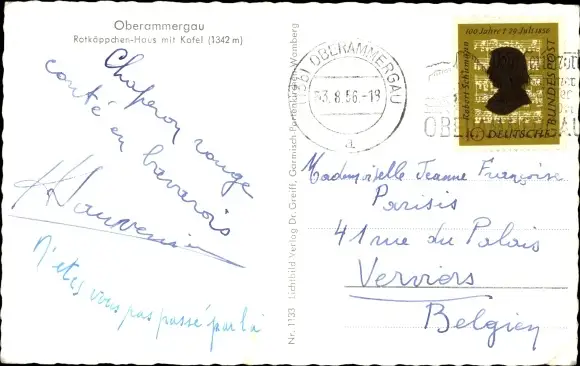 Oberammergau
Rotkäppchen-Haus mit Kofel (1342 m)
Chaperon rouge
conté en bavarois
N'êtes vous pas passé par là
Nr. 1133 Lichtbild Verlag Dr. Greiff, Garmisch-Partenkirchen-Wamberg
OBERAMMERGAU
3.8.56.-19
a
100 Jahre † 29 Juli 1856
Robert Schumann
DEUTSCHE
BUNDESPOST
Mademoiselle Jeanne Françoise
Parisis
41 rue du Palais
Verviers
Belgien